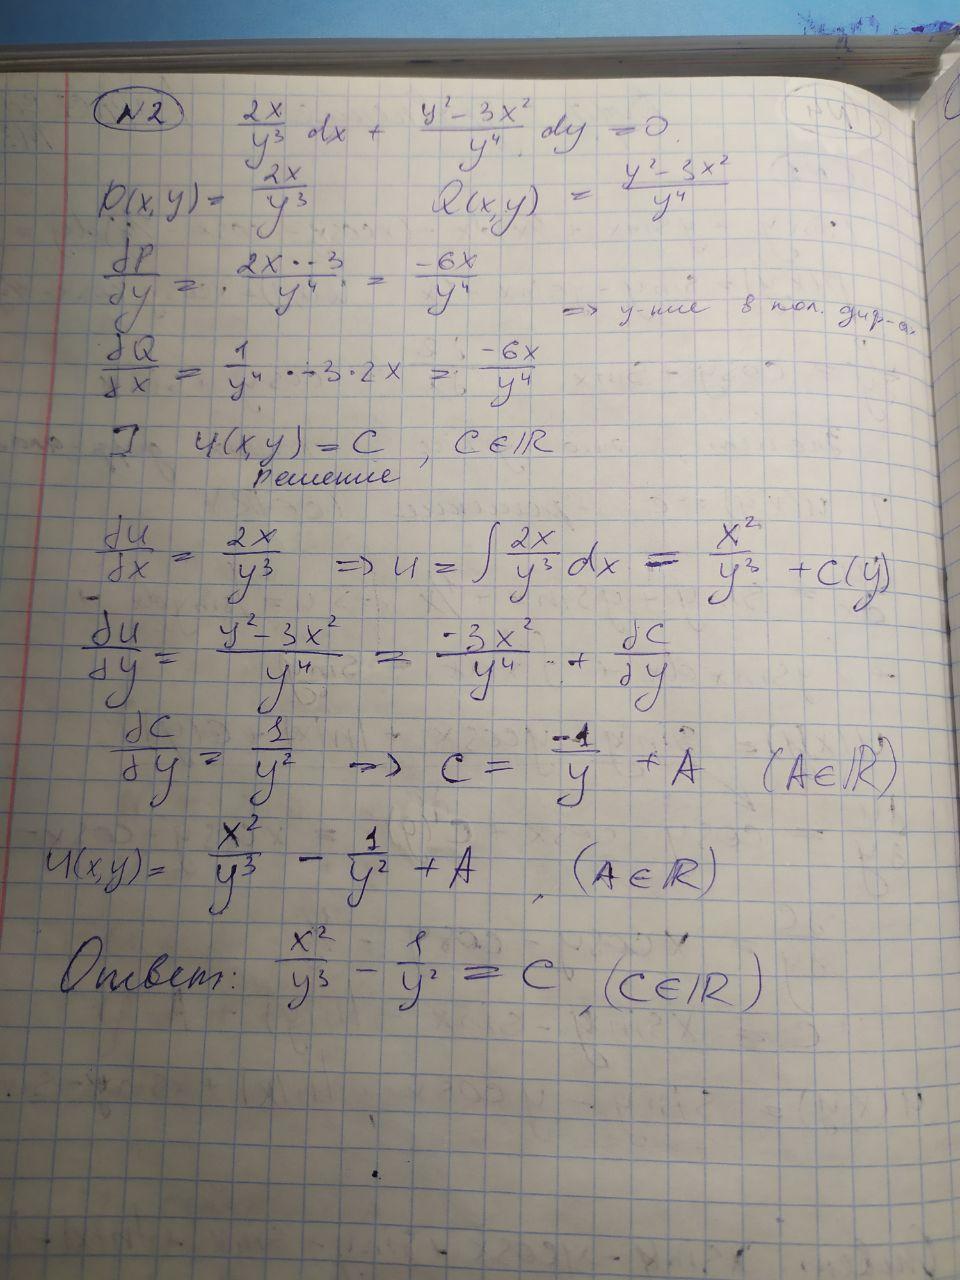 N2 2x/y³ dx + (y² - 3x²)/y⁴ dy = 0.
P(x,y) = 2x/y³ Q(x,y) = (y² - 3x²)/y⁴
δP/δy = 2x·-3/y⁴ = -6x/y⁴
=> у-ние в пол. диф-а.
δQ/δx = 1/y⁴ · -3·2x = -6x/y⁴
U(x,y) = C, C∈ℝ
решение
δu/δx = 2x/y³ => u = ∫ 2x/y³ dx = x²/y³ + C(y)
δu/δy = (y² - 3x²)/y⁴ = -3x²/y⁴ + δC/δy
δC/δy = 1/y² => C = -1/y + A (A∈ℝ)
U(x,y) = x²/y³ - 1/y² + A, (A∈ℝ)
Ответ: x²/y³ - 1/y² = C, (C∈ℝ)